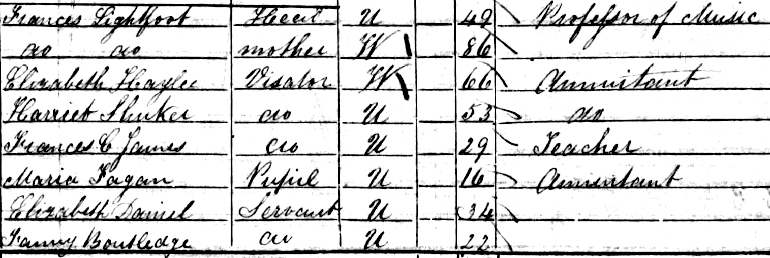 Frances Lightfoot Head U 49 Professor of Music
do do mother W 86
Elizabeth Hayler Visator W 66 Annuitant
Harriet Shuker do U 53 do
Frances C James do U 29 Teacher
Maria Fagan Pupil U 16 Annuitant
Elizabeth Daniel Servant U 34
Fanny Boutledge do U 22